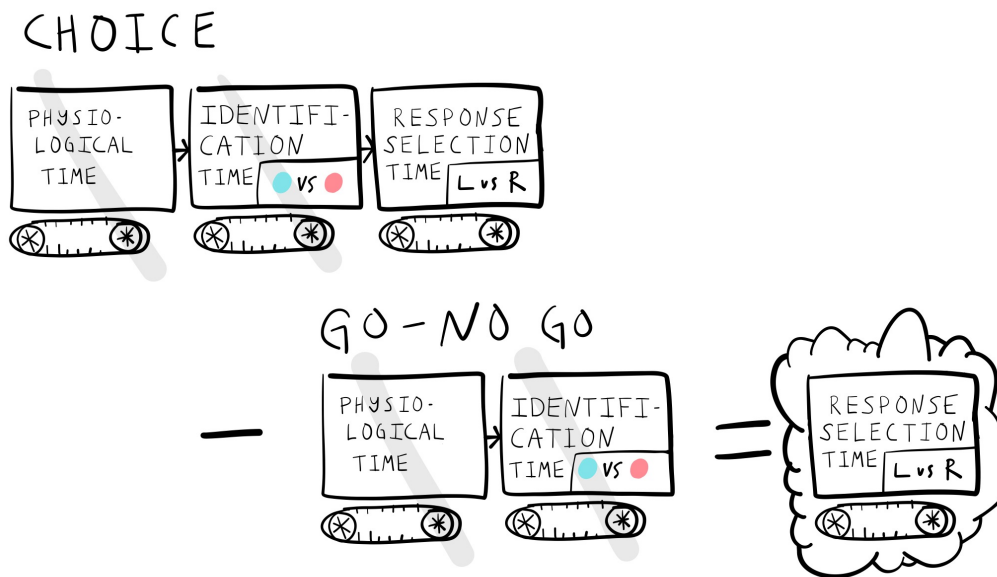 CHOICE
PHYSIO-
LOGICAL
TIME
IDENTIFI-
CATION
TIME
VS
RESPONSE
SELECTION
TIME
L vs R
GO-NO GO
—
PHYSIO-
LOGICAL
TIME
IDENTIFI-
CATION
TIME
VS
=
RESPONSE
SELECTION
TIME
L vs R